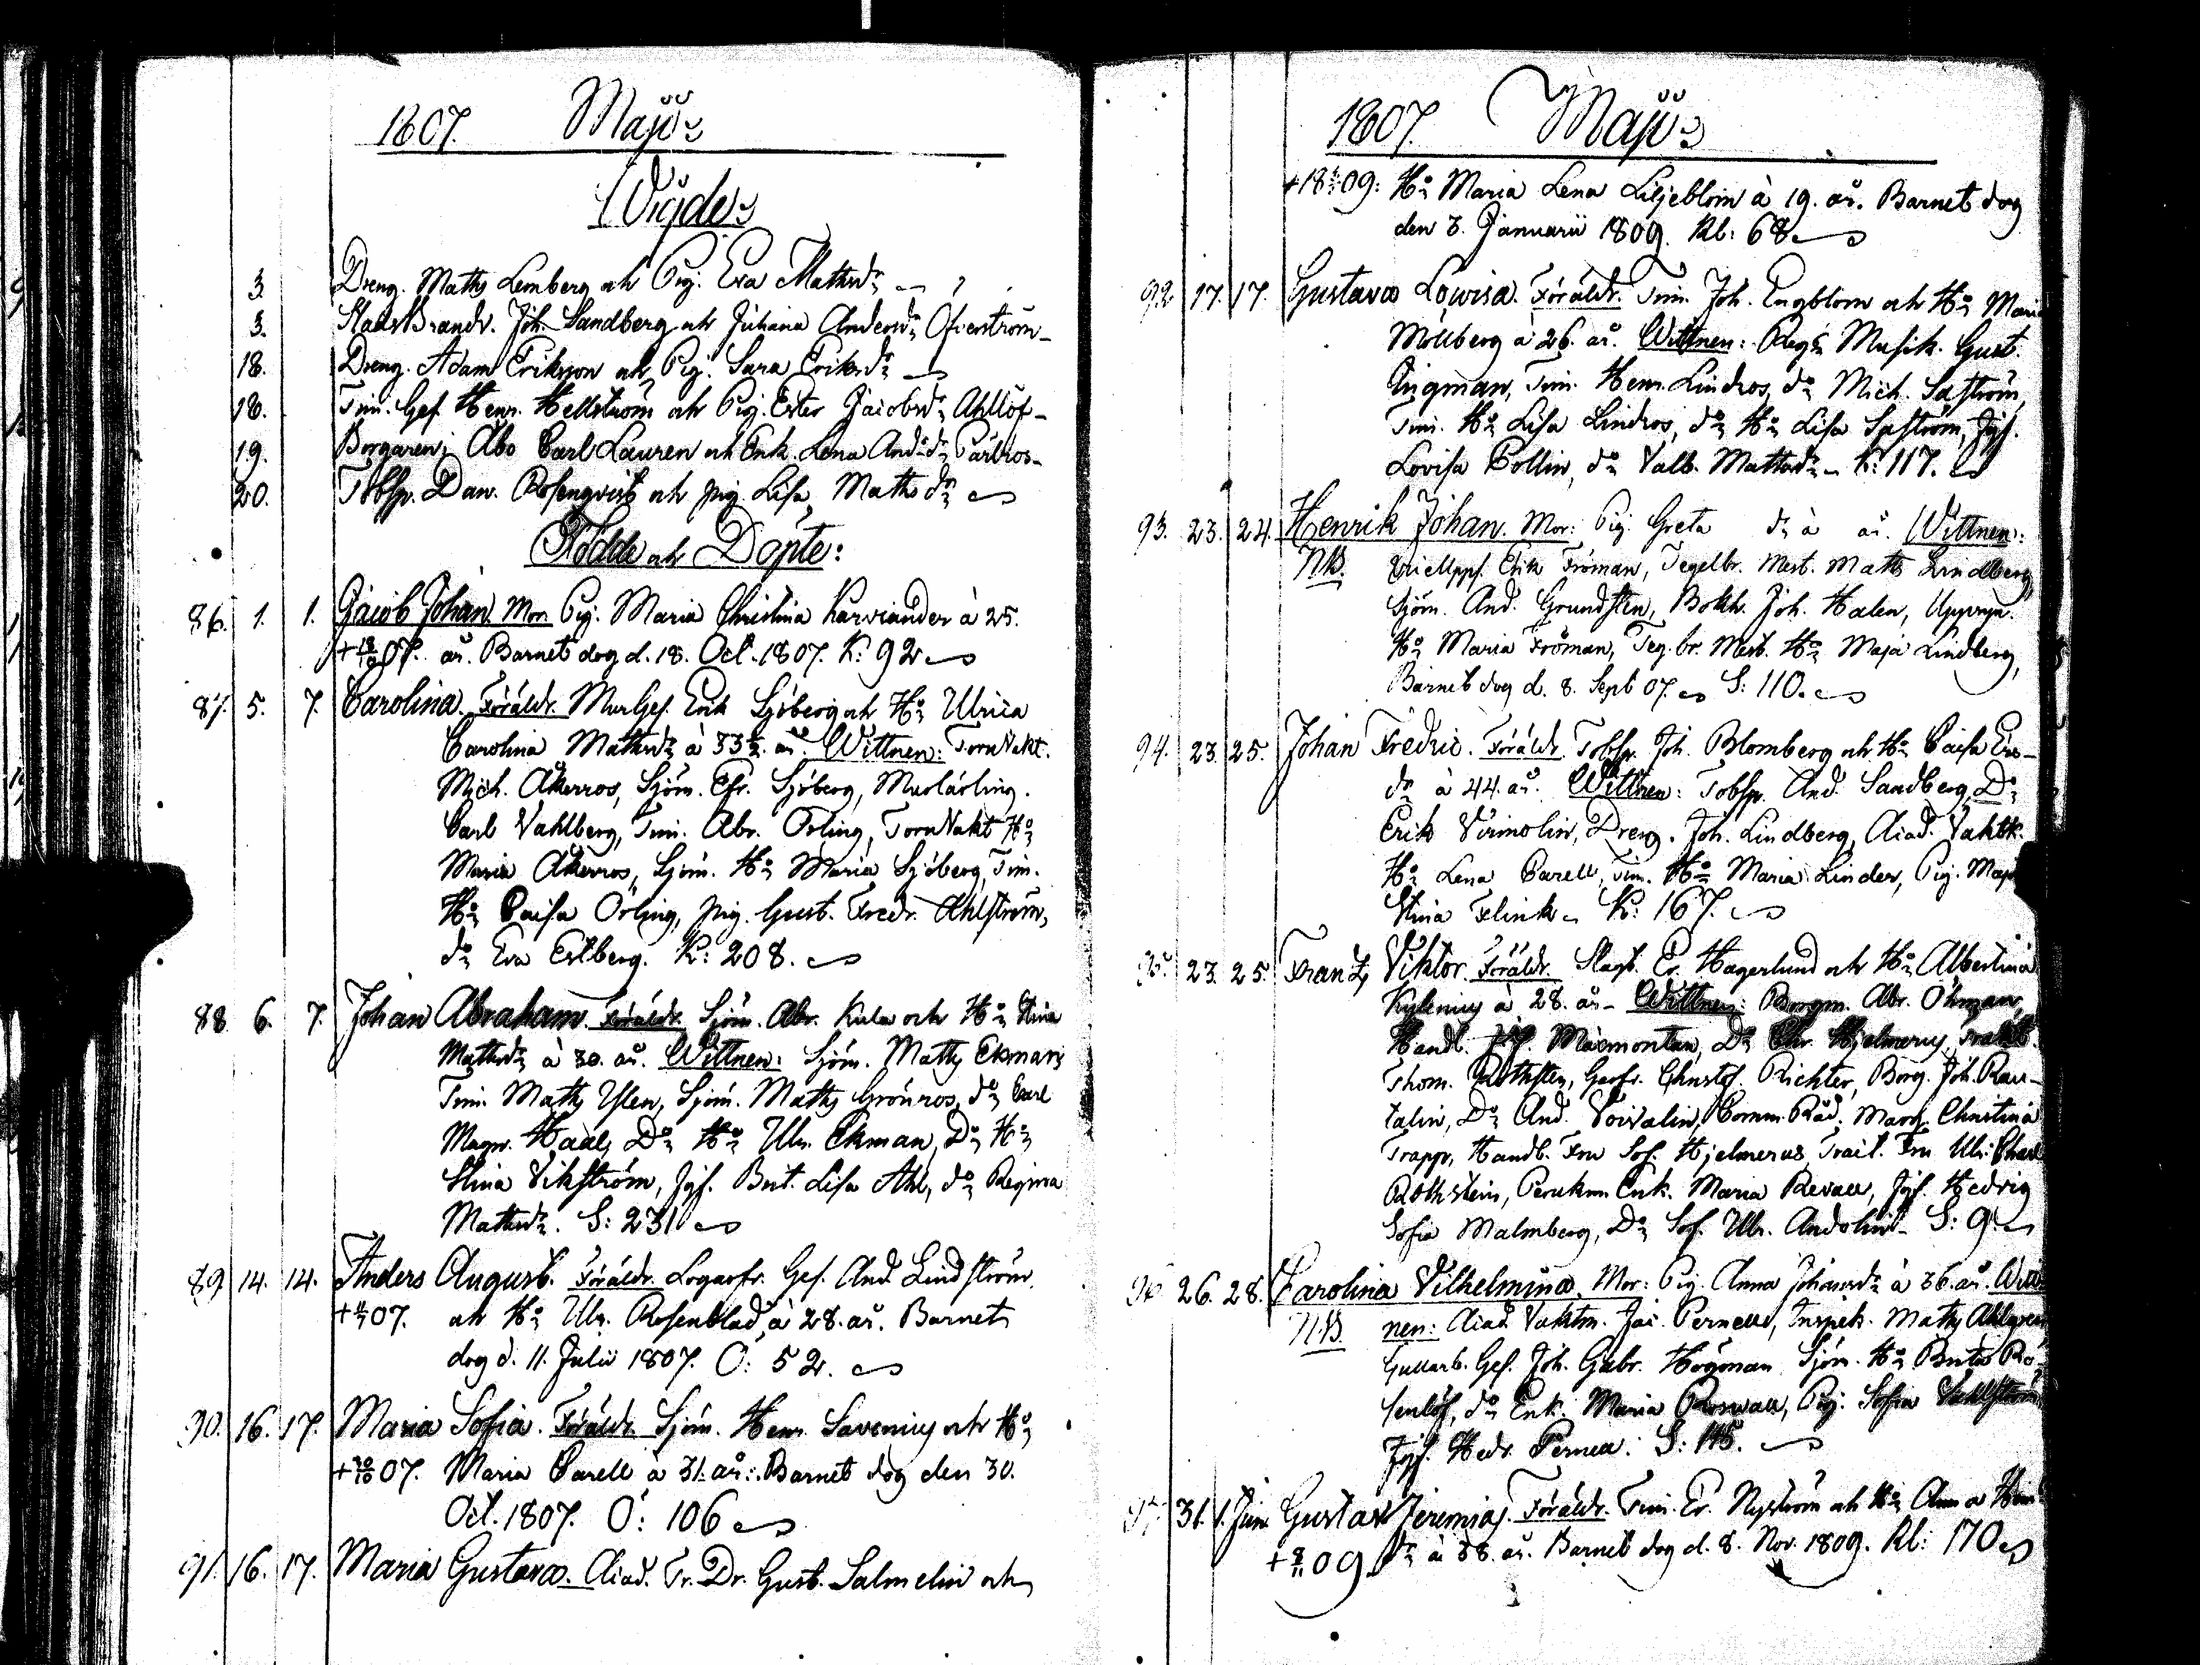 1807. Majus
Vigde:
3. Dreng. Maths Lemberg och Pig. Eva Mathsdr
3. StadsBrandv. Joh. Sandberg och Juliana Andersdr Öfverström
18. Dreng. Adam Eriksson och Pig. Sara Eriksdr
18. Tim. Ges. Henr. Hellström och Pig. Ester Jacobsdr Ahllöf
19. Borgaren i Åbo Carl Lauren och Enk. Lena And:dr Carlros
20. Tobsp. Dav. Rosenqvist och pig. Lisa Mathsdr
Födde och Döpte:
86. 1. 1. Jacob Johan. Mor. Pig. Maria Christina Karviander à 25.
+18/10 07. år. Barnet dog d. 18. Oct. 1807. K: 92
87. 5. 7. Carolina. Föräldr. MurGes. Erik Sjöberg och Ho Ulrica
Carolina Mathsdr à 33½ år. Wittnen: TornVakt.
Mich. Åkerros, Sjöm. Efr. Sjöberg, Murlärling.
Carl Vahlberg, Tim. Abr. Örling, TornVakt Ho
Maria Åkerros, Sjöm. Ho Maria Sjöberg, Tim.
Ho Caisa Örling, pig. Gust. Fredr. Ahlström,
do Eva Estberg. K: 208.
88. 6. 7. Johan Abraham. Föräldr. Sjöm. Abr. Kula och Ho Stina
Mathsdr à 30. år. Wittnen: Sjöm. Maths Ekman,
Tim. Maths Uslen, Sjöm. Maths Grönros, do Carl
Magn. Haal, Do Ho Ulr. Ekman, Do Ho
Stina Vikström, Jgf. Brit. Lisa Ahl, do Regina
Mathsdr. S: 231
89. 14. 14. Anders August. Föräldr. Logarfv. Ges. And. Lindström
+11/7 07. och Ho Ulr. Rosenblad, à 28. år. Barnet
dog d. 11. Julii 1807. Ö: 52.
90. 16. 17. Maria Sofia. Föräldr. Sjöm. Henr. Savenius och Ho
+30/10 07. Maria Carell à 31. år. Barnet dog den 30.
Oct. 1807. Ö: 106
91. 16. 17. Maria Gustava. Acad. Tr. Dr. Gust. Salmelin och
1807. Majus
+18 3/1 09: Ho Maria Lena Liljeblom à 19. år. Barnet dog
den 3. Januarii 1809. Kl: 68
92 17. 17. Gustava Lowisa. Föräldr. Tim. Joh. Engblom och Ho Maria
Möllberg à 26. år. Wittnen: Regts Musik. Gust.
Tim. Henr. Lindros, do Mich. Saström,
Tim. Ho Lisa Lindros, do Ho Lisa Saström, Jgf.
Lovisa Collin, do Valb. Mattsdr K: 117.
93. 23. 24. Henrik Johan. Mor: Pig. Greta dr à år. Wittnen:
NB. Erik Fröman, Tegelbr. Mest. Maths Lindberg,
Sjöm. And. Grundsten, Bokh. Joh. Halen,
Ho Maria Fröman, Teg. br. Mest. Ho Maja Lindberg,
Barnet dog d. 8. Sept 07. S: 110.
94. 23. 25. Johan Fredric. Föräldr. Tobsp. Joh. Blomberg och Ho Caisa Ers-
dr à 44. år. Wittnen: Tobsp. And. Sandberg, Do
Erik Virmolin, Dreng. Joh. Lindberg, Acad. Vaktk.
Ho Lena Carell, Tim. Ho Maria Linder, Pig. Maja
Stina Flink. K: 167.
95. 23. 25. Frantz Viktor. Föräldr. Slagt. Er. Hagerlund och Ho Albertina
Kylenius à 28. år. Wittnen: Borgm. Abr. Öhman,
Handl. Maxmontan, Do Chr. Hjelmerus, Trakt.
Thom. Rothsten, Garfv. Christof. Richter, Borg. Joh. Rau-
talin, Do And. Voivalin, Comm. Råd. Marg. Christina
Trapp, Handl. Fru Sof. Hjelmerus, Trait. Fru Ulr. Charl
Rothstein, Perukm. Enk. Maria Revall, Jgf. Hedvig
Sofia Malmberg, Do Sof. Ulr. Andolin. S: 9.
96. 26. 28. Carolina Vilhelmina. Mor: Pig Anna Johansdr à 36. år. Witt-
NB. nen: Acad. Vaktm. Jac. Pernell, Inspek. Maths Ahlgren
Gullarb. Ges. Joh. Gabr. Högman Sjöm. Ho Brita Ro-
senlöf, do Enk. Maria Roswall, Pig. Sofia Vahlström
Jgf. Hedv. Pernell. S: 145.
97. 31. 1. Jun. Gustav Jeremias. Föräldr. Tim. Er. Nyström och Ho Anna Hen
+8/11 09. dr à 38. år. Barnet dog d. 8. Nov. 1809. Kl: 170